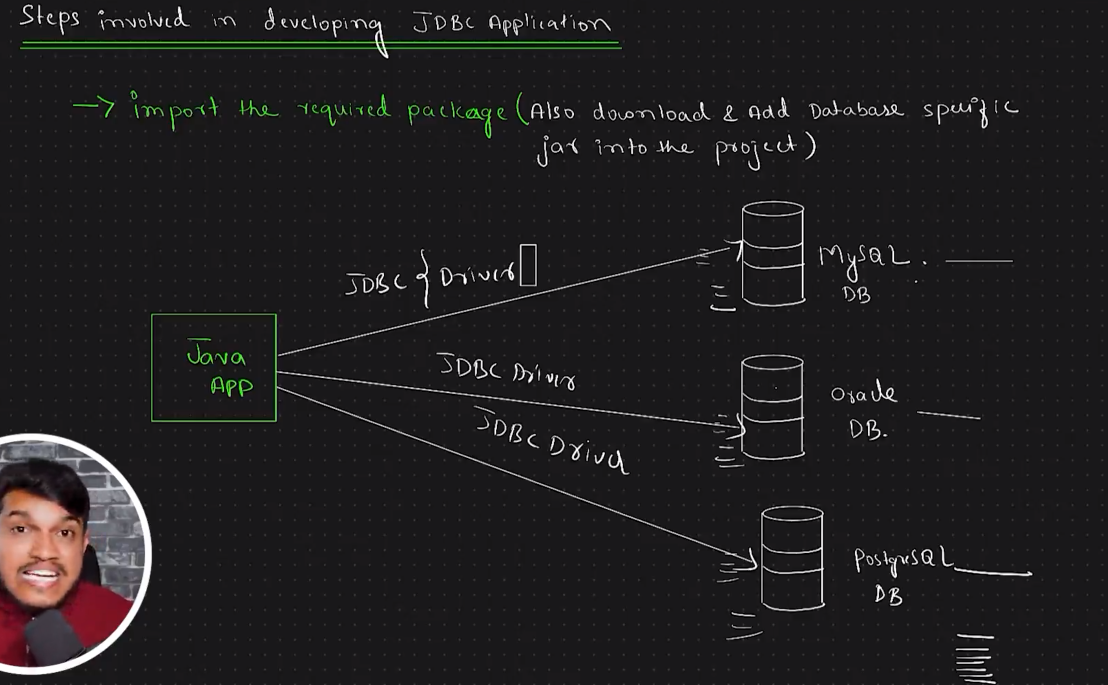 Steps involved in developing JDBC Application
→ import the required package (Also download & Add Database specific
jar into the project)
JDBC { Driver
MySQL.
DB
Java
APP
JDBC Driver
Oracle
DB.
JDBC Driver
PostgreSQL
DB